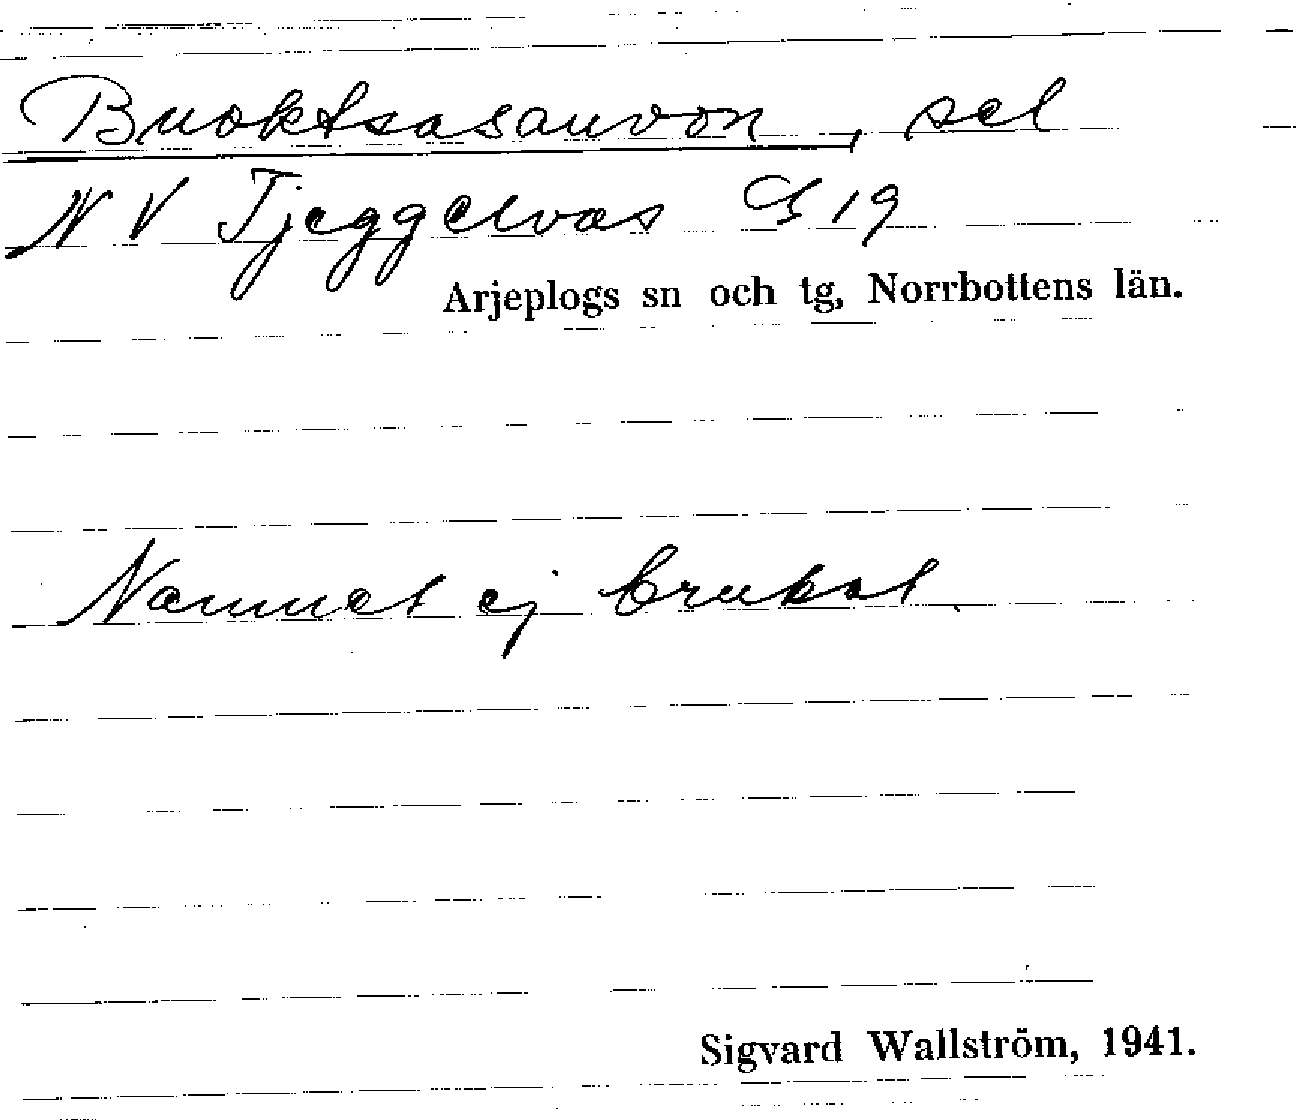 Buoktsasauvon, sel
NV Tjeggelvas G 19
Arjeplogs sn och tg, Norrbottens län.
Namnet ej brukat.
Sigvard Wallström, 1941.